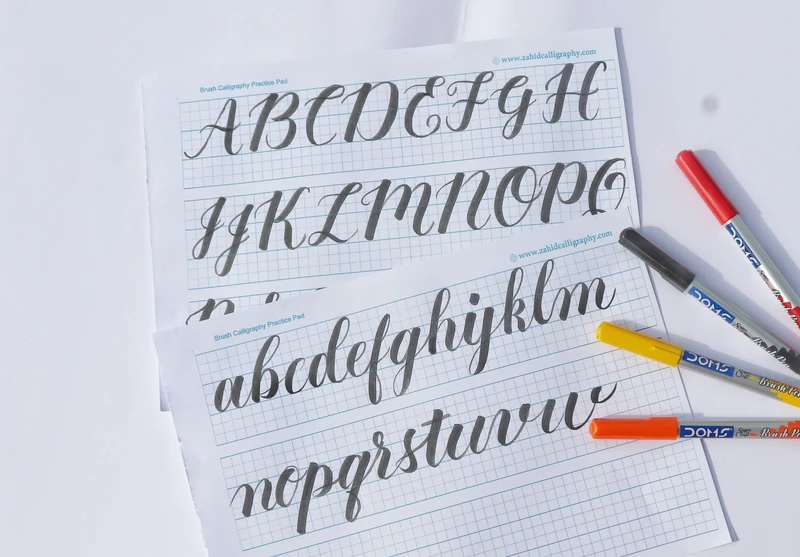 Brush Calligraphy Practice Pad
© www.zahidcalligraphy.com
A B C D E F G H
I J K L M N O P Q
Brush Calligraphy Practice Pad
© www.zahidcalligraphy.com
a b c d e f g h i j k l m
n o p q r s t u v w
DOMS
DOMS
DOMS Brush Pen
DOMS Brush Pen